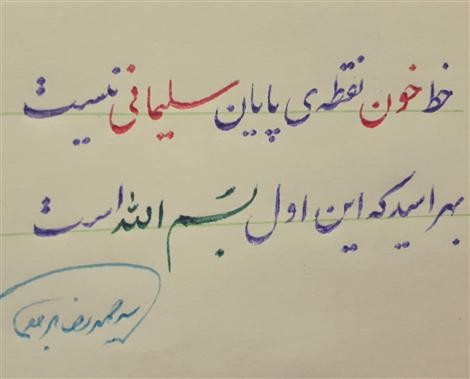 خط خون نقطه‌ی پایان سلیمانی نیست
بهراسید که این اول بسم الله است
سید محمدرضا برقعی